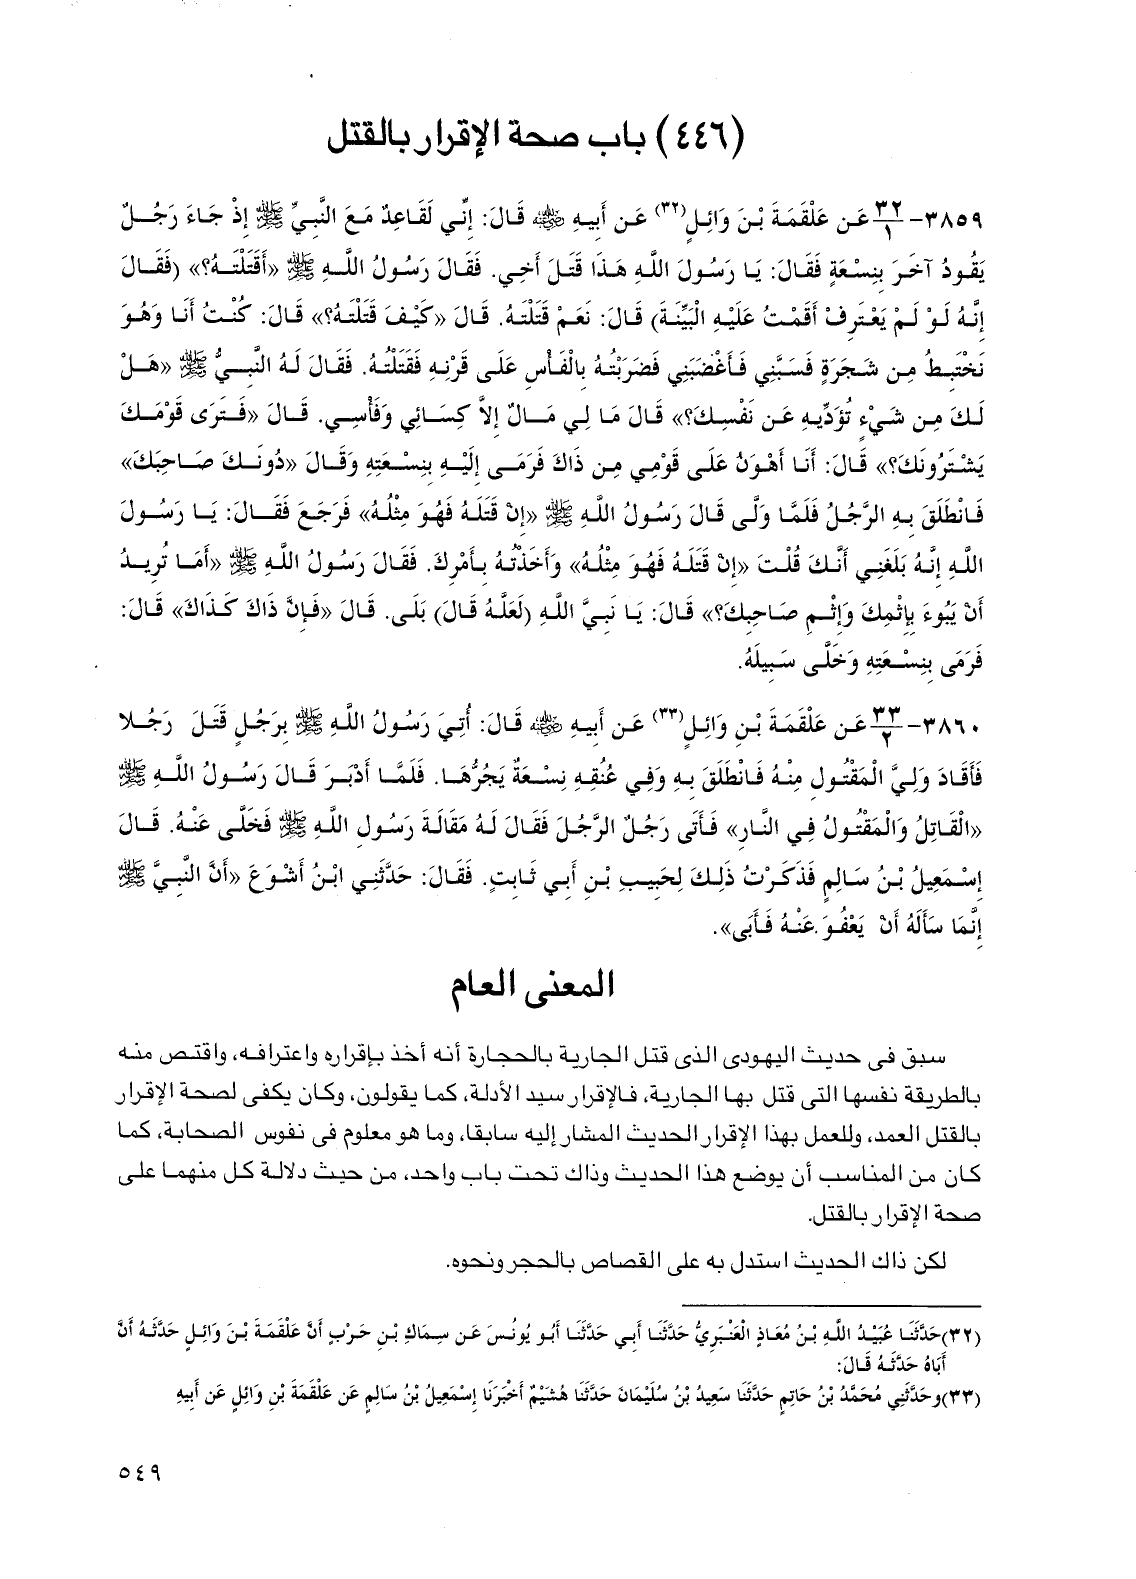 (٤٤٦) باب صحة الإقرار بالقتل
٣٨٥٩- ٣٢/١ عَن عَلْقَمَةَ بْنَ وَائِلٍ(٣٢) عَن أَبِيهِ ﷺ قَالَ: إِنِّي لَقَاعِدٌ مَعَ النَّبِيِّ ﷺ إِذْ جَاءَ رَجُلٌ
يَقُودُ آخَرَ بِنِسْعَةٍ فَقَالَ: يَا رَسُولَ اللَّهِ هَذَا قَتَلَ أَخِي. فَقَالَ رَسُولُ اللَّهِ ﷺ «أَقَتَلْتَهُ؟» (فَقَالَ
إِنَّهُ لَوْ لَمْ يَعْتَرِفْ أَقَمْتُ عَلَيْهِ الْبَيِّنَةَ) قَالَ: نَعَمْ قَتَلْتَهُ. قَالَ «كَيْفَ قَتَلْتَهُ؟» قَالَ: كُنْتُ أَنَا وَهُوَ
نَخْتَبِطُ مِن شَجَرَةٍ فَسَبَّنِي فَأَغْضَبَنِي فَضَرَبْتُهُ بِالْفَأْسِ عَلَى قَرْنِهِ فَقَتَلْتُهُ. فَقَالَ لَهُ النَّبِيُّ ﷺ «هَلْ
لَكَ مِن شَيْءٍ تُؤَدِّيهِ عَن نَفْسِكَ؟» قَالَ مَا لِي مَالٌ إِلاَّ كِسَائِي وَفَأْسِي. قَالَ «فَتَرَى قَوْمَكَ
يَشْتَرُونَكَ؟» قَالَ: أَنَا أَهْوَنُ عَلَى قَوْمِي مِن ذَاكَ فَرَمَى إِلَيْهِ بِنِسْعَتِهِ وَقَالَ «دُونَكَ صَاحِبَكَ»
فَانْطَلَقَ بِهِ الرَّجُلُ فَلَمَّا وَلَّى قَالَ رَسُولُ اللَّهِ ﷺ «إِنْ قَتَلَهُ فَهُوَ مِثْلُهُ» فَرَجَعَ فَقَالَ: يَا رَسُولَ
اللَّهِ إِنَّهُ بَلَغَنِي أَنَّكَ قُلْتَ «إِنْ قَتَلَهُ فَهُوَ مِثْلُهُ» وَأَخَذْتُهُ بِأَمْرِكَ. فَقَالَ رَسُولُ اللَّهِ ﷺ «أَمَا تُرِيدُ
أَنْ يَبُوءَ بِإِثْمِكَ وَإِثْمِ صَاحِبِكَ؟» قَالَ: يَا نَبِيَّ اللَّهِ (لَعَلَّهُ قَالَ) بَلَى. قَالَ «فَإِنَّ ذَاكَ كَذَاكَ» قَالَ:
فَرَمَى بِنِسْعَتِهِ وَخَلَّى سَبِيلَهُ.
٣٨٦٠- ٣٣/٢ عَن عَلْقَمَةَ بْنِ وَائِلٍ(٣٣) عَن أَبِيهِ ﷺ قَالَ: أُتِيَ رَسُولُ اللَّهِ ﷺ بِرَجُلٍ قَتَلَ رَجُلا
فَأَقَادَ وَلِيَّ الْمَقْتُولِ مِنْهُ فَانْطَلَقَ بِهِ وَفِي عُنُقِهِ نِسْعَةٌ يَجُرُّهَا. فَلَمَّا أَدْبَرَ قَالَ رَسُولُ اللَّهِ ﷺ
«الْقَاتِلُ وَالْمَقْتُولُ فِي النَّارِ» فَأَتَى رَجُلٌ الرَّجُلَ فَقَالَ لَهُ مَقَالَةَ رَسُولِ اللَّهِ ﷺ فَخَلَّى عَنْهُ. قَالَ
إِسْمَعِيلُ بْنُ سَالِمٍ فَذَكَرْتُ ذَلِكَ لِحَبِيبِ بْنِ أَبِي ثَابِتٍ. فَقَالَ: حَدَّثَنِي ابْنُ أَشْوَعَ «أَنَّ النَّبِيَّ ﷺ
إِنَّمَا سَأَلَهُ أَنْ يَعْفُوَ عَنْهُ فَأَبَى».
المعنى العام
سبق فى حديث اليهودى الذى قتل الجارية بالحجارة أنه أخذ بإقراره واعترافه، واقتص منه
بالطريقة نفسها التى قتل بها الجارية، فالإقرار سيد الأدلة، كما يقولون، وكان يكفى لصحة الإقرار
بالقتل العمد، وللعمل بهذا الإقرار الحديث المشار إليه سابقا، وما هو معلوم فى نفوس الصحابة، كما
كان من المناسب أن يوضع هذا الحديث وذاك تحت باب واحد، من حيث دلالة كل منهما على
صحة الإقرار بالقتل.
لكن ذاك الحديث استدل به على القصاص بالحجر ونحوه.
(٣٢)حَدَّثَنَا عُبَيْدُ اللَّهِ بْنُ مُعَاذٍ الْعَنْبَرِيُّ حَدَّثَنَا أَبِي حَدَّثَنَا أَبُو يُونُسَ عَن سِمَاكِ بْنِ حَرْبٍ أَنَّ عَلْقَمَةَ بْنَ وَائِلٍ حَدَّثَهُ أَنَّ
أَبَاهُ حَدَّثَهُ قَالَ:
(٣٣)وحَدَّثَنِي مُحَمَّدُ بْنُ حَاتِمٍ حَدَّثَنَا سَعِيدُ بْنُ سُلَيْمَانَ حَدَّثَنَا هُشَيْمٌ أَخْبَرَنَا إِسْمَعِيلُ بْنُ سَالِمٍ عَن عَلْقَمَةَ بْنِ وَائِلٍ عَن أَبِيهِ
٥٤٩